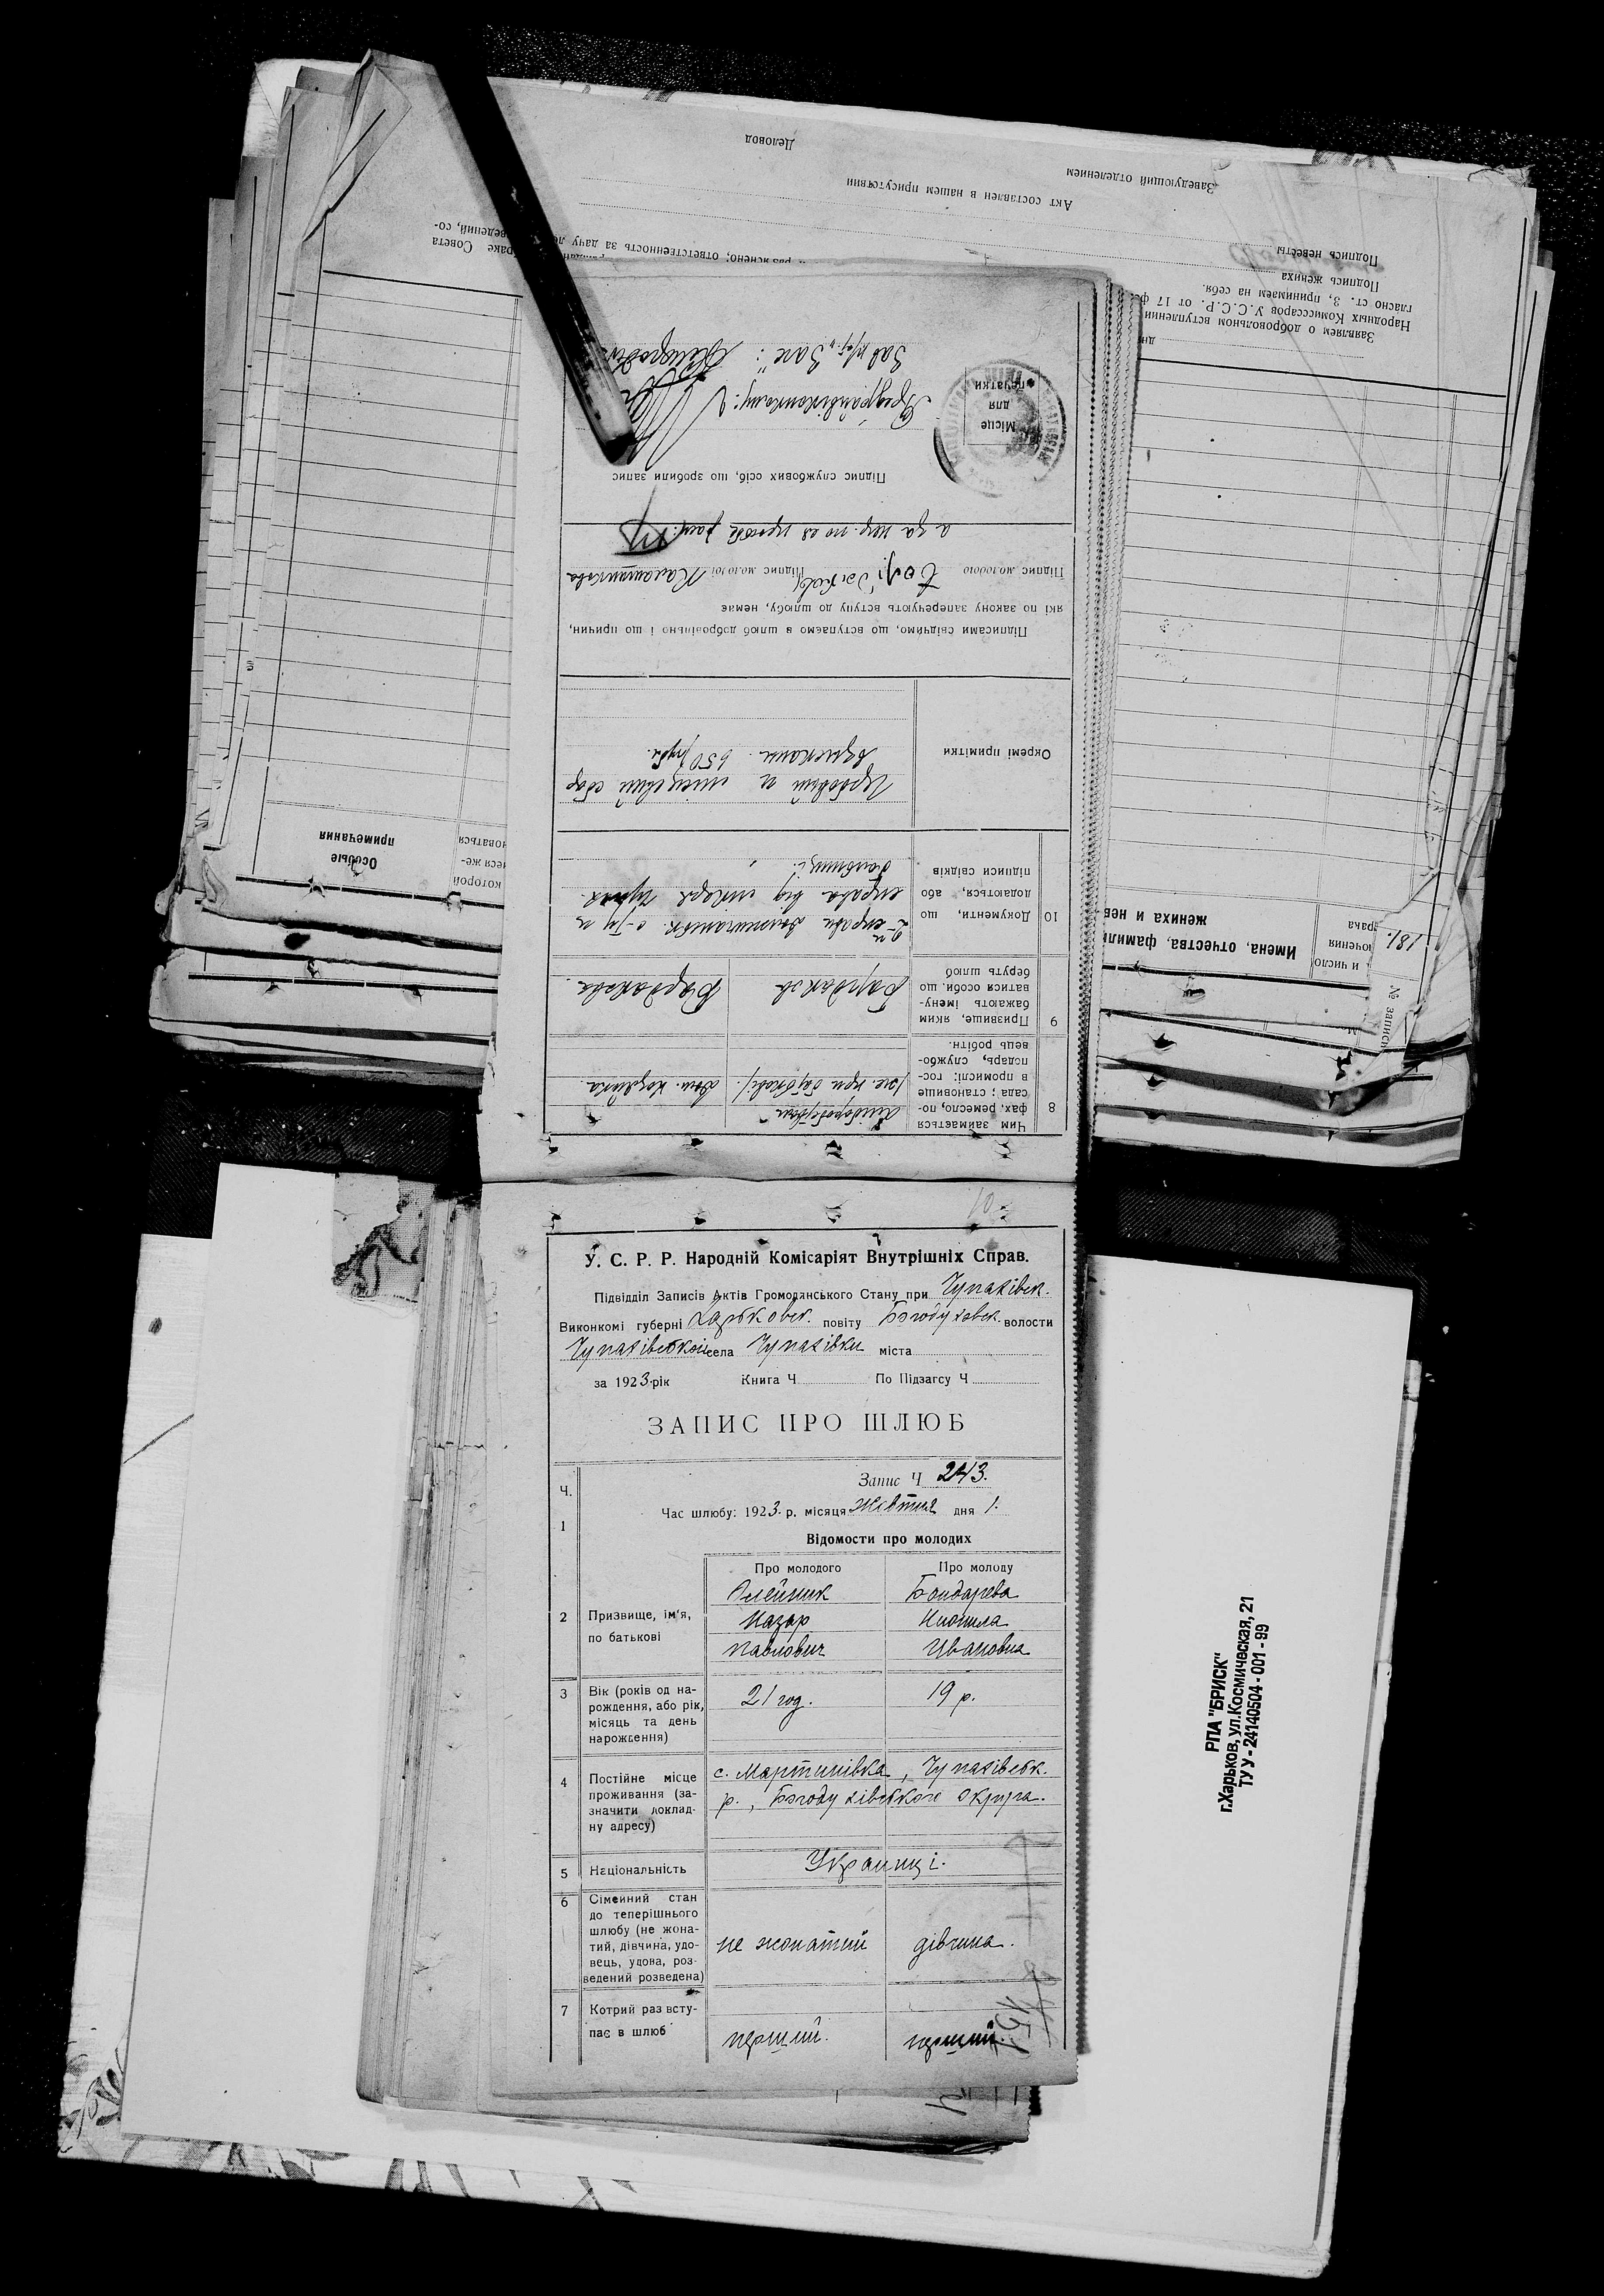 У. С. Р. Р. Народній Комісаріят Внутрішніх Справ.
Підвідділ Записів Актів Громодянського Стану при Чупахівськ.
Виконкомі губерні Харьковск. повіту Богодухівск. волости
Чупахівської села Чупахівки міста
за 1923 рік Книга Ч По Підзагсу Ч
ЗАПИС ПРО ШЛЮБ
Ч. Запис Ч 243.
1 Час шлюбу: 1923 р. місяця жовтня дня 1.
Відомости про молодих
Про молодого Про молоду
Олейник Бондарева
2 Призвище, ім'я, Назар
по батькові Павлович Ивановна
3 Вік (років од на- 21 год. 19 р.
рождення, або рік,
місяць та день
нарождення)
4 Постійне місце с. Мартинівка, Чупахівськ.
проживання (за- р., Богодухівського округа.
значити доклад-
ну адресу)
5 Національність Украинці.
6 Сімейний стан
до теперішнього
шлюбу (не жона-
тий, дівчина, удо- не жонатий дівчина.
вець, удова, роз-
ведений розведена)
7 Котрий раз всту-
пає в шлюб перший. перший.
8 Чим займається
фах, ремесло, по-
сада; становище
в промислі: гос-
подарь, службо-
вець робітн.
9 Призвище, яким Бардаков Бардакова
бажають імену-
ватися особи, що
беруть шлюб
10 Документи, що
додаються, або
підписи свідків
Окремі примітки Гербовий и місцевий сбор
взыскани 650 рубл.
Підписами свідчимо, що вступаємо в шлюб добровільно і що причин,
які по закону заперечують вступу до шлюбу, немає
Підпис молодого Підпис молодої Калашникова
Підпис службових осіб, що зробили запис
Місце
для
печатки
Зав п/від. "Загс":
№ запис
181.
Имена, отчества, фамили
жениха и нев
Особые
примечания
которой
Заявляем о добровольном вступлении
Народных Комиссаров У.С.С.Р. от 17 ф
гласно ст. 3, принимаем на себя.
Подпись жениха
Подпись невесты
раке Совета
разъяснено; ответственность за дачу
ведений, со-
Акт составлен в нашем присутствии
Заведующий отделением
Деловод
РПА "БРИСК"
г.Харьков, ул.Космическая, 21
ТУ У - 24140504 - 001 - 99